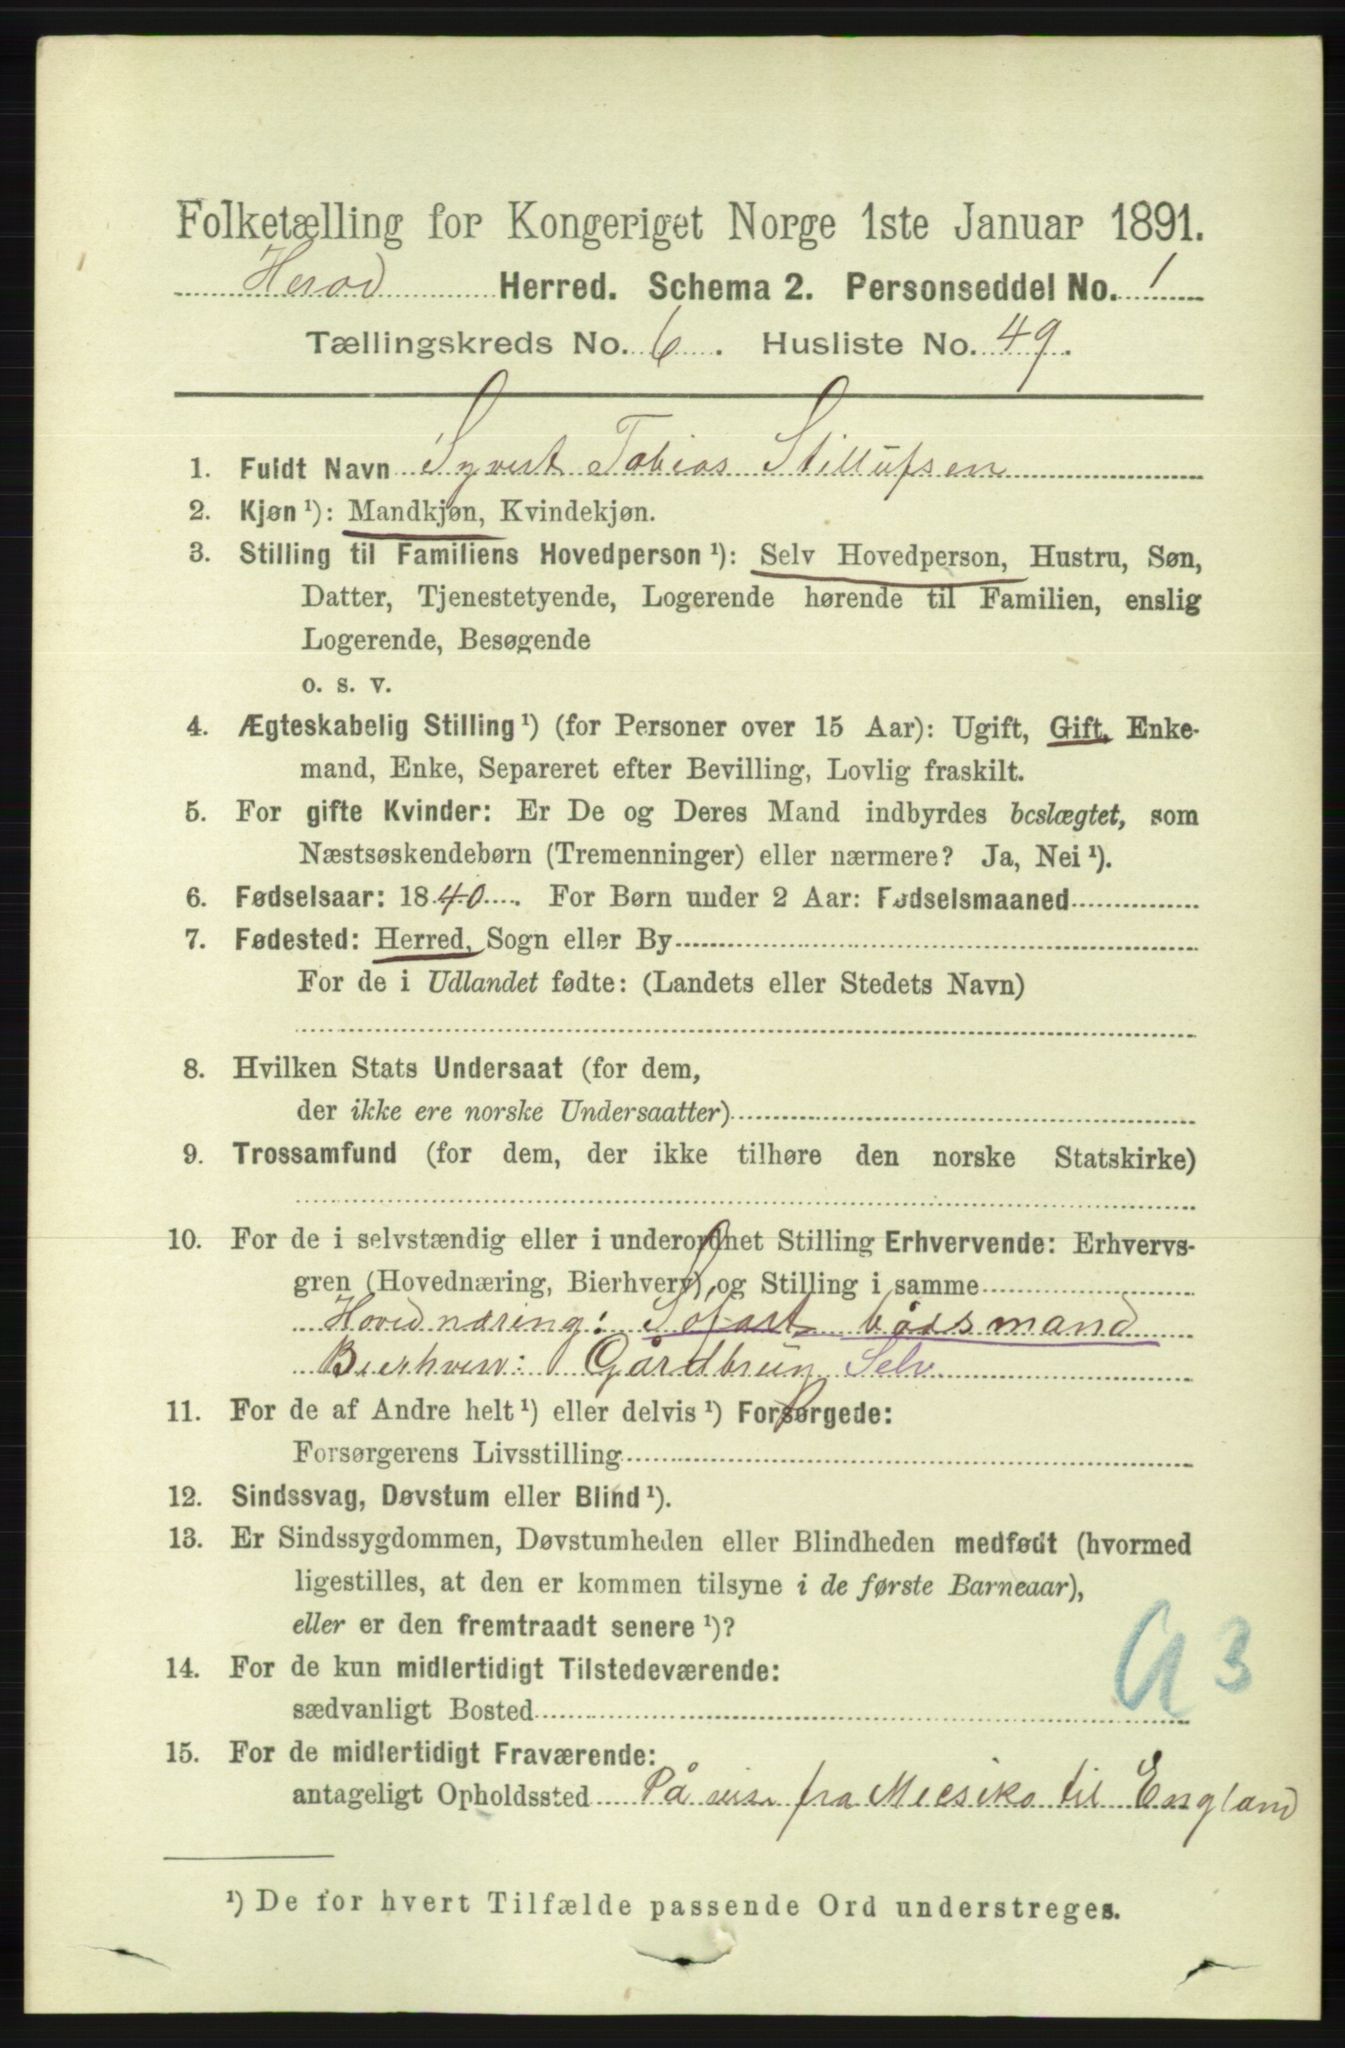 Folketælling for Kongeriget Norge 1ste Januar 1891.
Herod Herred. Schema 2. Personseddel No. 1
Tællingskreds No. 6. Husliste No. 49.
1. Fuldt Navn Syvert Tobias Stillufsen
2. Kjøn ¹): Mandkjøn, Kvindekjøn.
3. Stilling til Familiens Hovedperson ¹): Selv Hovedperson, Hustru, Søn,
Datter, Tjenestetyende, Logerende hørende til Familien, enslig
Logerende, Besøgende
o. s. v.
4. Ægteskabelig Stilling ¹) (for Personer over 15 Aar): Ugift, Gift, Enke-
mand, Enke, Separeret efter Bevilling, Lovlig fraskilt.
5. For gifte Kvinder: Er De og Deres Mand indbyrdes beslægtet, som
Næstsøskendebørn (Tremenninger) eller nærmere? Ja, Nei ¹).
6. Fødselsaar: 1840. For Børn under 2 Aar: Fødselsmaaned
7. Fødested: Herred, Sogn eller By
For de i Udlandet fødte: (Landets eller Stedets Navn)
8. Hvilken Stats Undersaat (for dem,
der ikke ere norske Undersaatter)
9. Trossamfund (for dem, der ikke tilhøre den norske Statskirke)
10. For de i selvstændig eller i underordnet Stilling Erhvervende: Erhvervs-
gren (Hovednæring, Bierhverv) og Stilling i samme
Hovednæring: Søfart bådsmand
Bierhverv: Gårdbrug Selv
11. For de af Andre helt ¹) eller delvis ¹) Forsørgede:
Forsørgerens Livsstilling
12. Sindssvag, Døvstum eller Blind ¹).
13. Er Sindssygdommen, Døvstumheden eller Blindheden medfødt (hvormed
ligestilles, at den er kommen tilsyne i de første Barneaar),
eller er den fremtraadt senere ¹)?
14. For de kun midlertidigt Tilstedeværende:
sædvanligt Bosted
G 3
15. For de midlertidigt Fraværende:
antageligt Opholdssted På reise fra Mecsiko til England
¹) De for hvert Tilfælde passende Ord understreges.